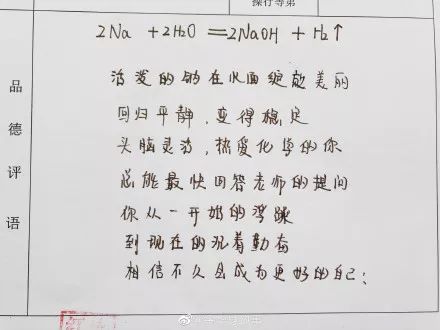 操行等第
品德评语
2Na + 2H₂O ══ 2NaOH + H₂↑
活泼的钠在水面绽放美丽
回归平静，变得稳定
头脑灵活，热爱化学的你
总能最快回答老师的提问
你从一开始的浮躁
到现在的沉着勤奋
相信不久会成为更好的自己；